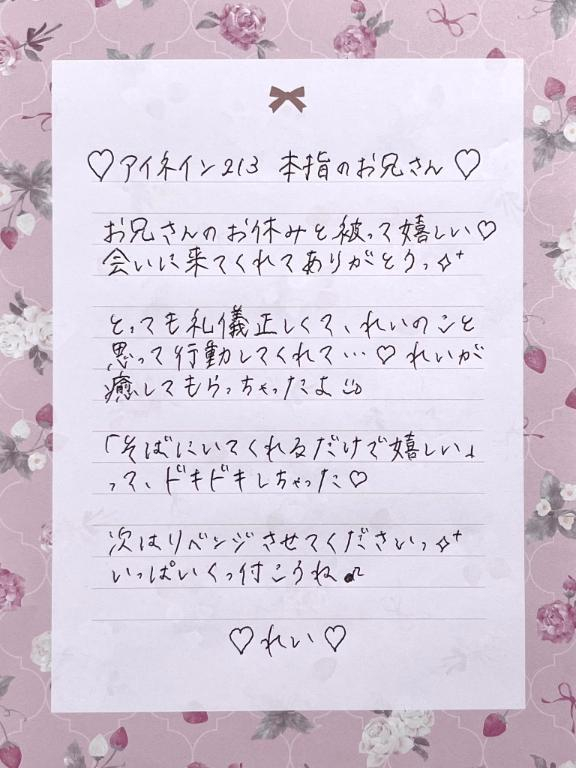 ♡アイネイン213 本指のお兄さん♡
お兄さんのお休みと被って嬉しい♡
会いに来てくれてありがとうっ✧⁺
とっても礼儀正しくて、れいのこと
思って行動してくれて…♡ れいが
癒してもらっちゃったよ
「そばにいてくれるだけで嬉しい」
って、ドキドキしちゃった♡
次はリベンジさせてくださいっ✧⁺
いっぱいくっ付こうね♪
♡れい♡